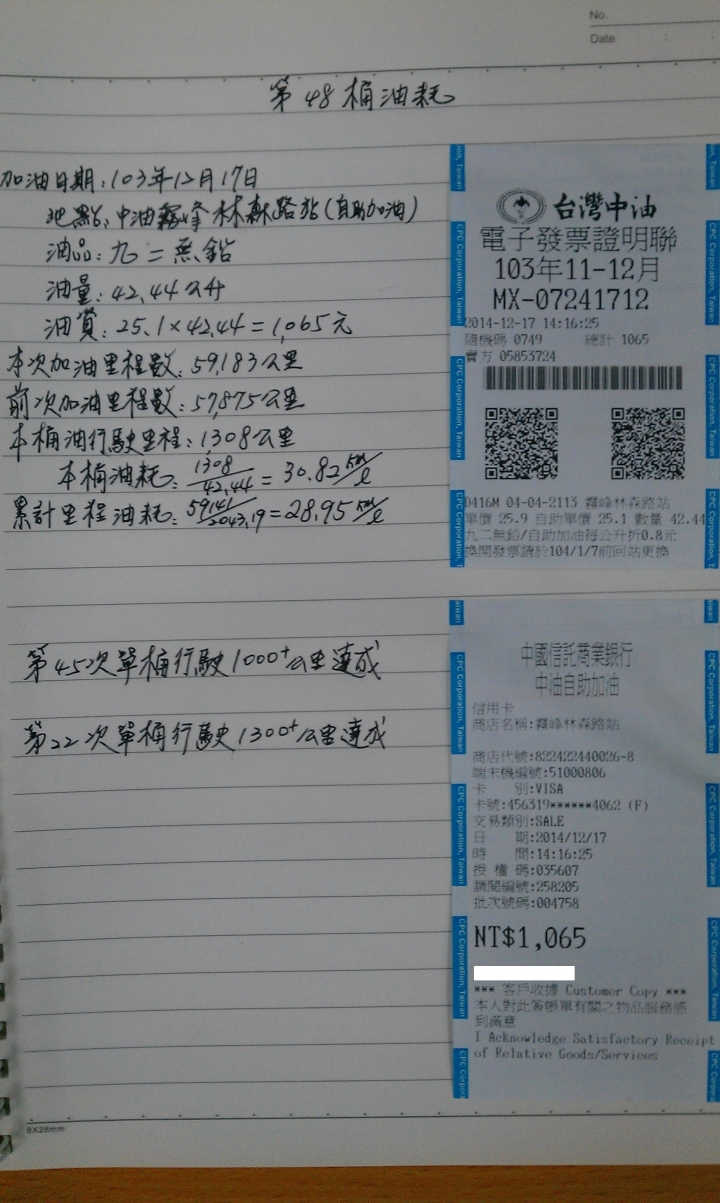 No.
Date : :
第48桶油耗
加油日期:103年12月17日
地點:中油霧峰林森路站(自助加油)
油品:九二無鉛
油量:42.44公升
油資:25.1×42.44=1,065元
本次加油里程數:59,183公里
前次加油里程數:57,875公里
本桶油行駛里程:1,308公里
本桶油耗:1308/42.44=30.82km/l
累計里程油耗:59141/2043.19=28.95km/l
第45次單桶行駛1000+公里達成
第22次單桶行駛1300+公里達成
台灣中油
電子發票證明聯
103年11-12月
MX-07241712
2014-12-17 14:16:25
隨機碼 0749 總計 1065
賣方 05853724
0416M 04-04-2113 霧峰林森路站
單價 25.9 自助單價 25.1 數量 42.44
九二無鉛/自助加油每公升折0.8元
換開發票請於104/1/7前回站更換
中國信託商業銀行
中油自助加油
信用卡
商店名稱:霧峰林森路站
商店代號:822422440026-8
端末機編號:51000806
卡 別:VISA
卡號:456319******4062 (F)
交易類別:SALE
日 期:2014/12/17
時 間:14:16:25
授 權 碼:035607
調閱編號:258205
批次號碼:004758
NT$1,065
*** 客戶收據 Customer Copy ***
本人對此簽帳單有關之物品服務感
到滿意
I Acknowledge Satisfactory Receipt
of Relative Goods/Services
CPC Corporation, Taiwan
8X28mm